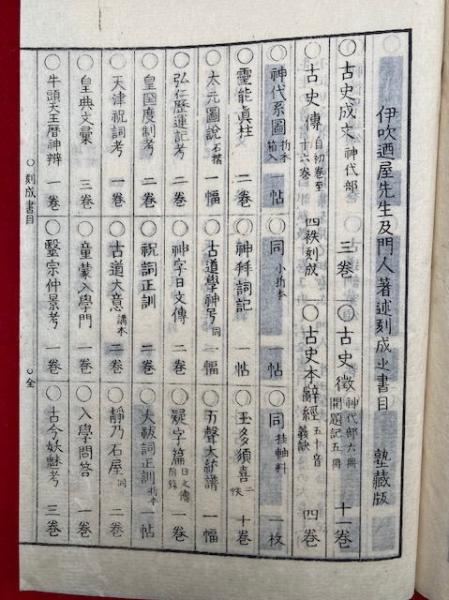 伊吹迺屋先生及門人著述刻成之書目 塾蔵版
〇古史成文 神代部 三巻 〇古史徴 神代部六冊 開題記五冊 十一巻
〇古史傳 自初巻至十六巻 四秩刻成 〇古史本辭經 五十音義訣 四巻
〇神代系圖 折本箱入 一帖 〇同 小折本 一帖 〇同 掛軸料 一枚
〇靈能眞柱 二巻 〇神拜詞記 一帖 〇玉多須喜 二帙 十巻
〇太元圖説 石摺 一幅 〇古道學神号 同 一幅 〇五聲大統譜 一幅
〇弘仁歴運記考 二巻 〇神字日文傳 二巻 〇疑字篇 日文傳附録 一巻
〇皇国度制考 二巻 〇祝詞正訓 二巻 〇大祓詞正訓 折本 一帖
〇天津祝詞考 一巻 〇古道大意 講本 二巻 〇靜乃石屋 同 二巻
〇皇典文彙 三巻 〇童蒙入學門 一巻 〇入學問答 一巻
〇牛頭天王暦神辨 一巻 〇醫宗仲景考 一巻 〇古今妖魅考 三巻
〇刻成書目 〇全